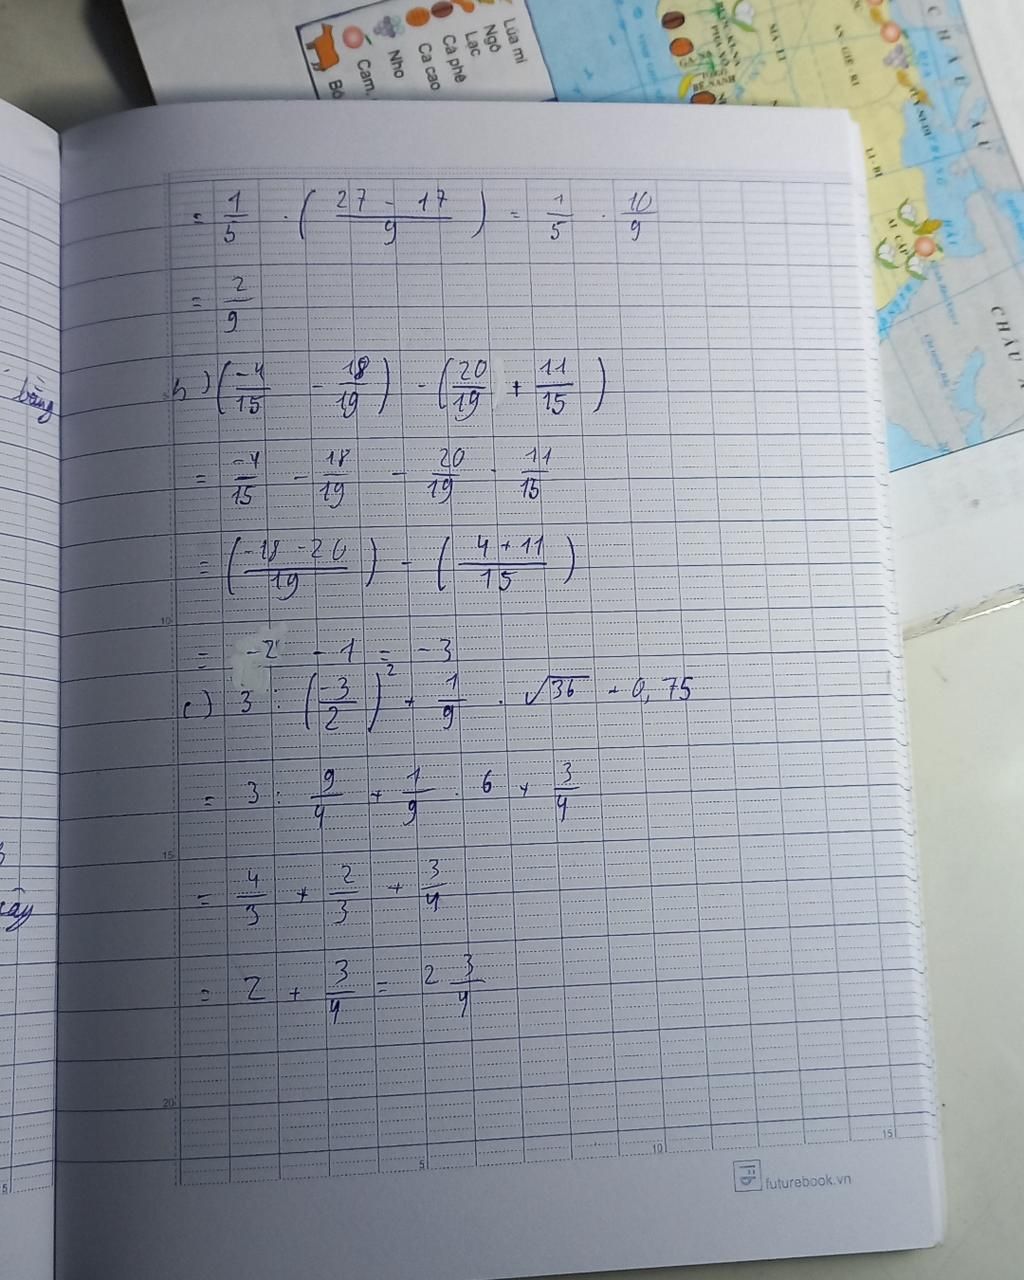 Lúa mì
Ngô
Lạc
Cà phê
Ca cao
Nho
Cam,
Bò
GA-NA
TÔGÔ
BÊ-NANH
AN-GIÊ-RI
LI-BI
AI CẬP
CHÂU Á
= 1/5 . ( (27 - 17)/9 ) = 1/5 . 10/9
= 2/9
b) (-4/15 - 18/19) - (20/19 + 11/15)
= -4/15 - 18/19 - 20/19 - 11/15
= ( (-18 - 20)/19 ) - ( (4 + 11)/15 )
= -2 - 1 = -3
c) 3 : (-3/2)² + 1/9 . √36 + 0,75
= 3 : 9/4 + 1/9 . 6 + 3/4
= 4/3 + 2/3 + 3/4
= 2 + 3/4 = 2 3/4
bằng
10
15
20
5
10
15
5
futurebook.vn